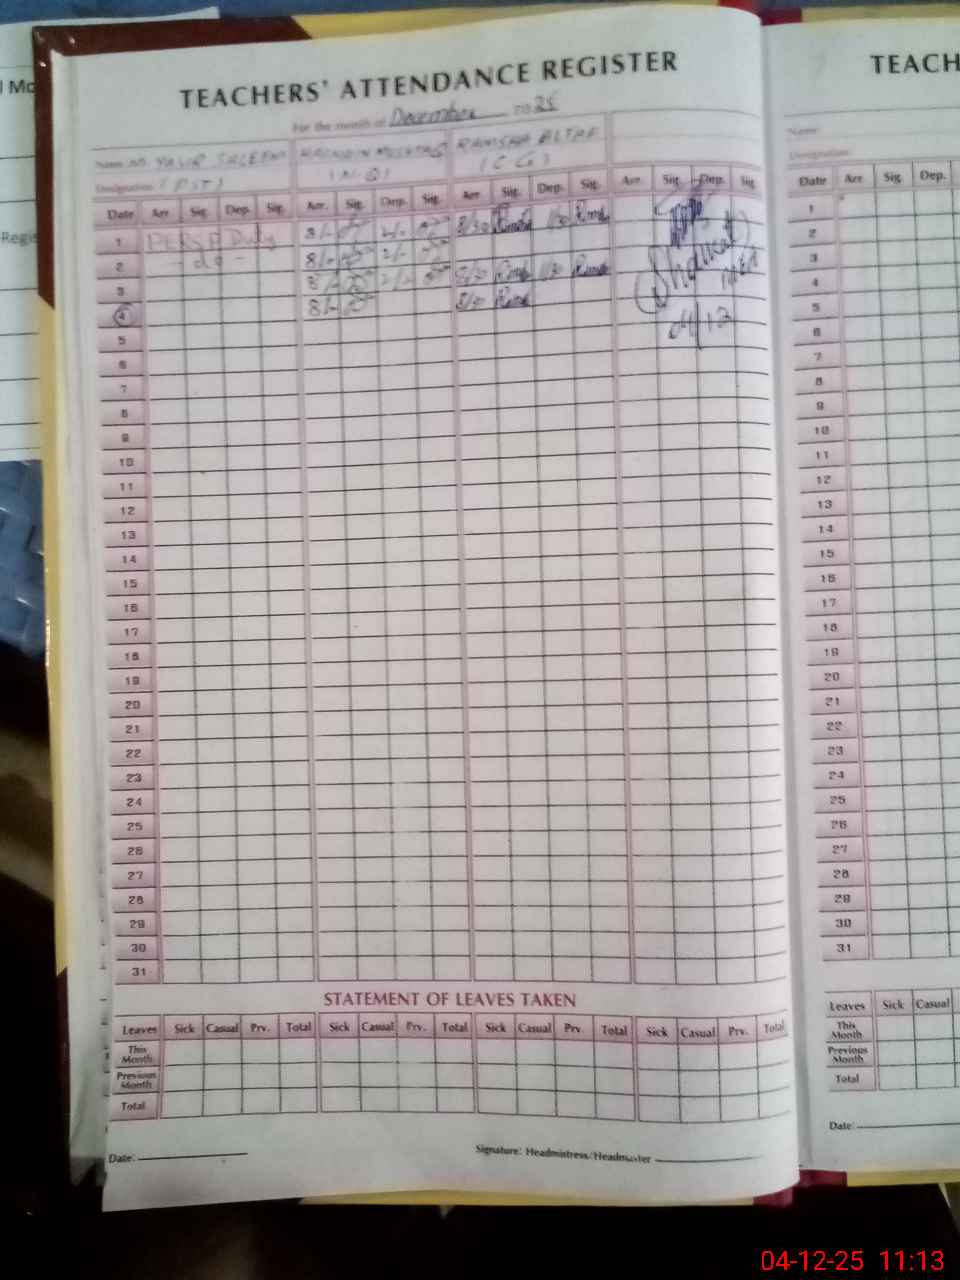 TEACHERS' ATTENDANCE REGISTER
For the month of December 2025
Name M. YASIR SALEEM
RAMSHA ALTAF
Designation (PST)
(N.Q)
(C.G)
Date Arr. Sig. Dep. Sig. Arr. Sig. Dep. Sig. Arr. Sig. Dep. Sig. Arr. Sig. Dep. Sig.
1 Duty 8/- 2/- 8/30 1/30
2 - do - 8/- 2/-
3 8/- 2/- 8/30 1/30
4 8/- 8/30
Shaukat
04/12
5
6
7
8
9
10
11
12
13
14
15
16
17
18
19
20
21
22
23
24
25
26
27
28
29
30
31
STATEMENT OF LEAVES TAKEN
Leaves Sick Casual Prv. Total Sick Casual Prv. Total Sick Casual Prv. Total Sick Casual Prv. Total
This Month
Previous Month
Total
Date:
Signature: Headmistress/Headmaster
TEACH
Name
Designation
Date Arr. Sig. Dep.
1
2
3
4
5
6
7
8
9
10
11
12
13
14
15
16
17
18
19
20
21
22
23
24
25
26
27
28
29
30
31
Leaves Sick Casual
This Month
Previous Month
Total
Date:
l Mo
Regis
04-12-25 11:13